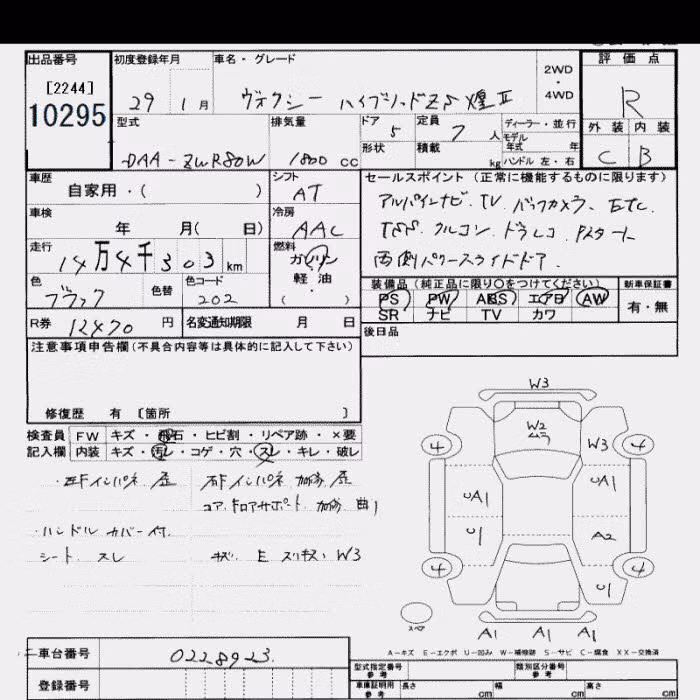 出品番号 初度登録年月 車名・グレード 評価点
[2244]
10295
29年 1月 ヴォクシー ハイブリッドZS煌Ⅱ 2WD・4WD R
型式 排気量 ドア 5 定員 7人 ディーラー・並行 外装 内装
形状 積載 kg モデル年式 年 ハンドル 左・右
DAA-ZWR80W 1800cc C B
車歴 シフト セールスポイント(正常に機能するものに限ります)
自家用・( ) AT
アルパインナビ. TV. バックカメラ. ETC.
車検 冷房
年 月( 日) AAC
TSS. クルコン. ドラレコ. Pスタート
走行 燃料
14万4千303km ガソリン
両側パワースライドドア.
軽油
・
( )
色 色替 色コード
ブラック 202
装備品(純正品に限り○をつけてください) 新車保証書
PS PW ABS エアB AW 有・無
SR ナビ TV カワ
R券 12470円 名変通知期限 月 日
後日品
注意事項申告欄(不具合内容等は具体的に記入して下さい)
修復歴 有 [箇所 ]
検査員 FW キズ・飛石・ヒビ割・リペア跡・×要
記入欄 内装 キズ・汚レ・コゲ・穴・スレ・キレ・破レ
右Fインパネ 加修 歪
コアサポート 加修 曲
・ハンドル カバー付.
シート. スレ キズ. E スリキズ. W3
W3
W2
ムラ
4 W3 4
UA1 UA1
U1 A2
4 4
U1
スペア
A1 A1 A1
A-キズ E-エクボ U-凹み W-補修跡 S-サビ C-腐食 XX-交換済
車台番号 0228923.
登録番号
型式指定番号 参考 類別区分番号 参考
車庫証明用 参考 長さ cm 幅 cm 高さ cm